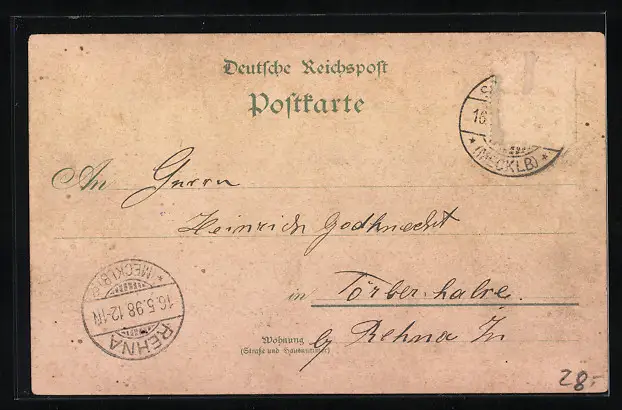 Deutsche Reichspost
Postkarte
S
16
* (MECKLB) *
An Herrn
Heinrich Godknecht
in Törber-halve.
Wohnung
(Straße und Hausnummer)
by Rehna In
* (MECKLB) *
16.5.98.12-1N
REHNA
28.-